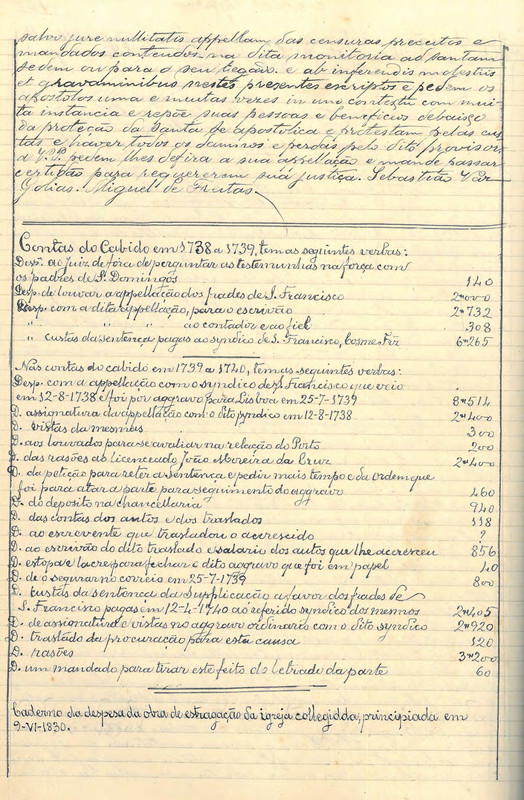 salvo jure nullitatis appellam das censuras preceitos e
mandados contendos na dita monitoria ad santam
sedem ou para o seu legado e ab inferendis molestiis
et gravaminibus nestes presentes escriptos e pedem os
apostolos uma e muitas vezes in uno contextu com mui-
ta instancia e repõe suas pessoas e beneficios debaixo
da proteção da Santa Sé apostolica e protestam pelas cus-
tas e haver todos os damnos e perdas pelo dito provisor
a V. pedem lhes defira a sua appellação e mande passar
certidão para requererem sua justiça. Sebastião Var
Golias. Miguel de Freitas.
Contas do Cabido em 1738 a 1739, tem as seguintes verbas:
Desp. ao Juiz de fora de perguntar as testemunhas na força com
os padres de S. Domingos 140
Desp. de louvar a appellação dos frades de S. Francisco 2"000
Desp. com a dita appellação, para o escrivão 2"732
" " " ao contador e ao fiel 308
" custas da sentença pagas ao syndico de S. Francisco, Cosme Fiz 6"265
Nas contas do cabido em 1739 a 1740, tem as seguintes verbas:
Desp. com a appellação com o syndico de S. Francisco que veio
em 12-8-1738 e foi por aggravo para Lisboa em 25-7-1739 8"514
D. assignatura da appellação com o dito syndico em 12-8-1738 2"400
D. vistas da mesma 300
D. aos louvados para se avaliar na relação do Porto 200
D. das rasões ao licenceado João Moreira da Cruz 2"400
D. da petição para reter a sentença e pedir mais tempo e da ordem que
foi para atar a parte para seguimento do aggravo 460
D. do deposito na chancellaria 940
D. das contas dos autos e dos traslados 118
D. ao escrevente que trasladou o accrescido ?
D. ao escrivão do dito traslado e salario dos autos que lhe accresceu 856
D. estopa e lacre para fechar o dito aggravo que foi em papel 40
D. de o segurar no correio em 25-7-1739 800
D. custas da sentença da Supplicação a favor dos frades de
S. Francisco pagas em 12-4-1740 ao referido syndico dos mesmos 2"405
D. de assignatura e vistas no aggravo ordinario com o dito syndico 2"920
D. traslado da procuração para esta causa 120
D. rasões 3"200
D. um mandado para tirar este feito do letrado da parte 60
Caderno da despesa da obra de estragação da igreja collegidda, principiada em
9-VI-1830.